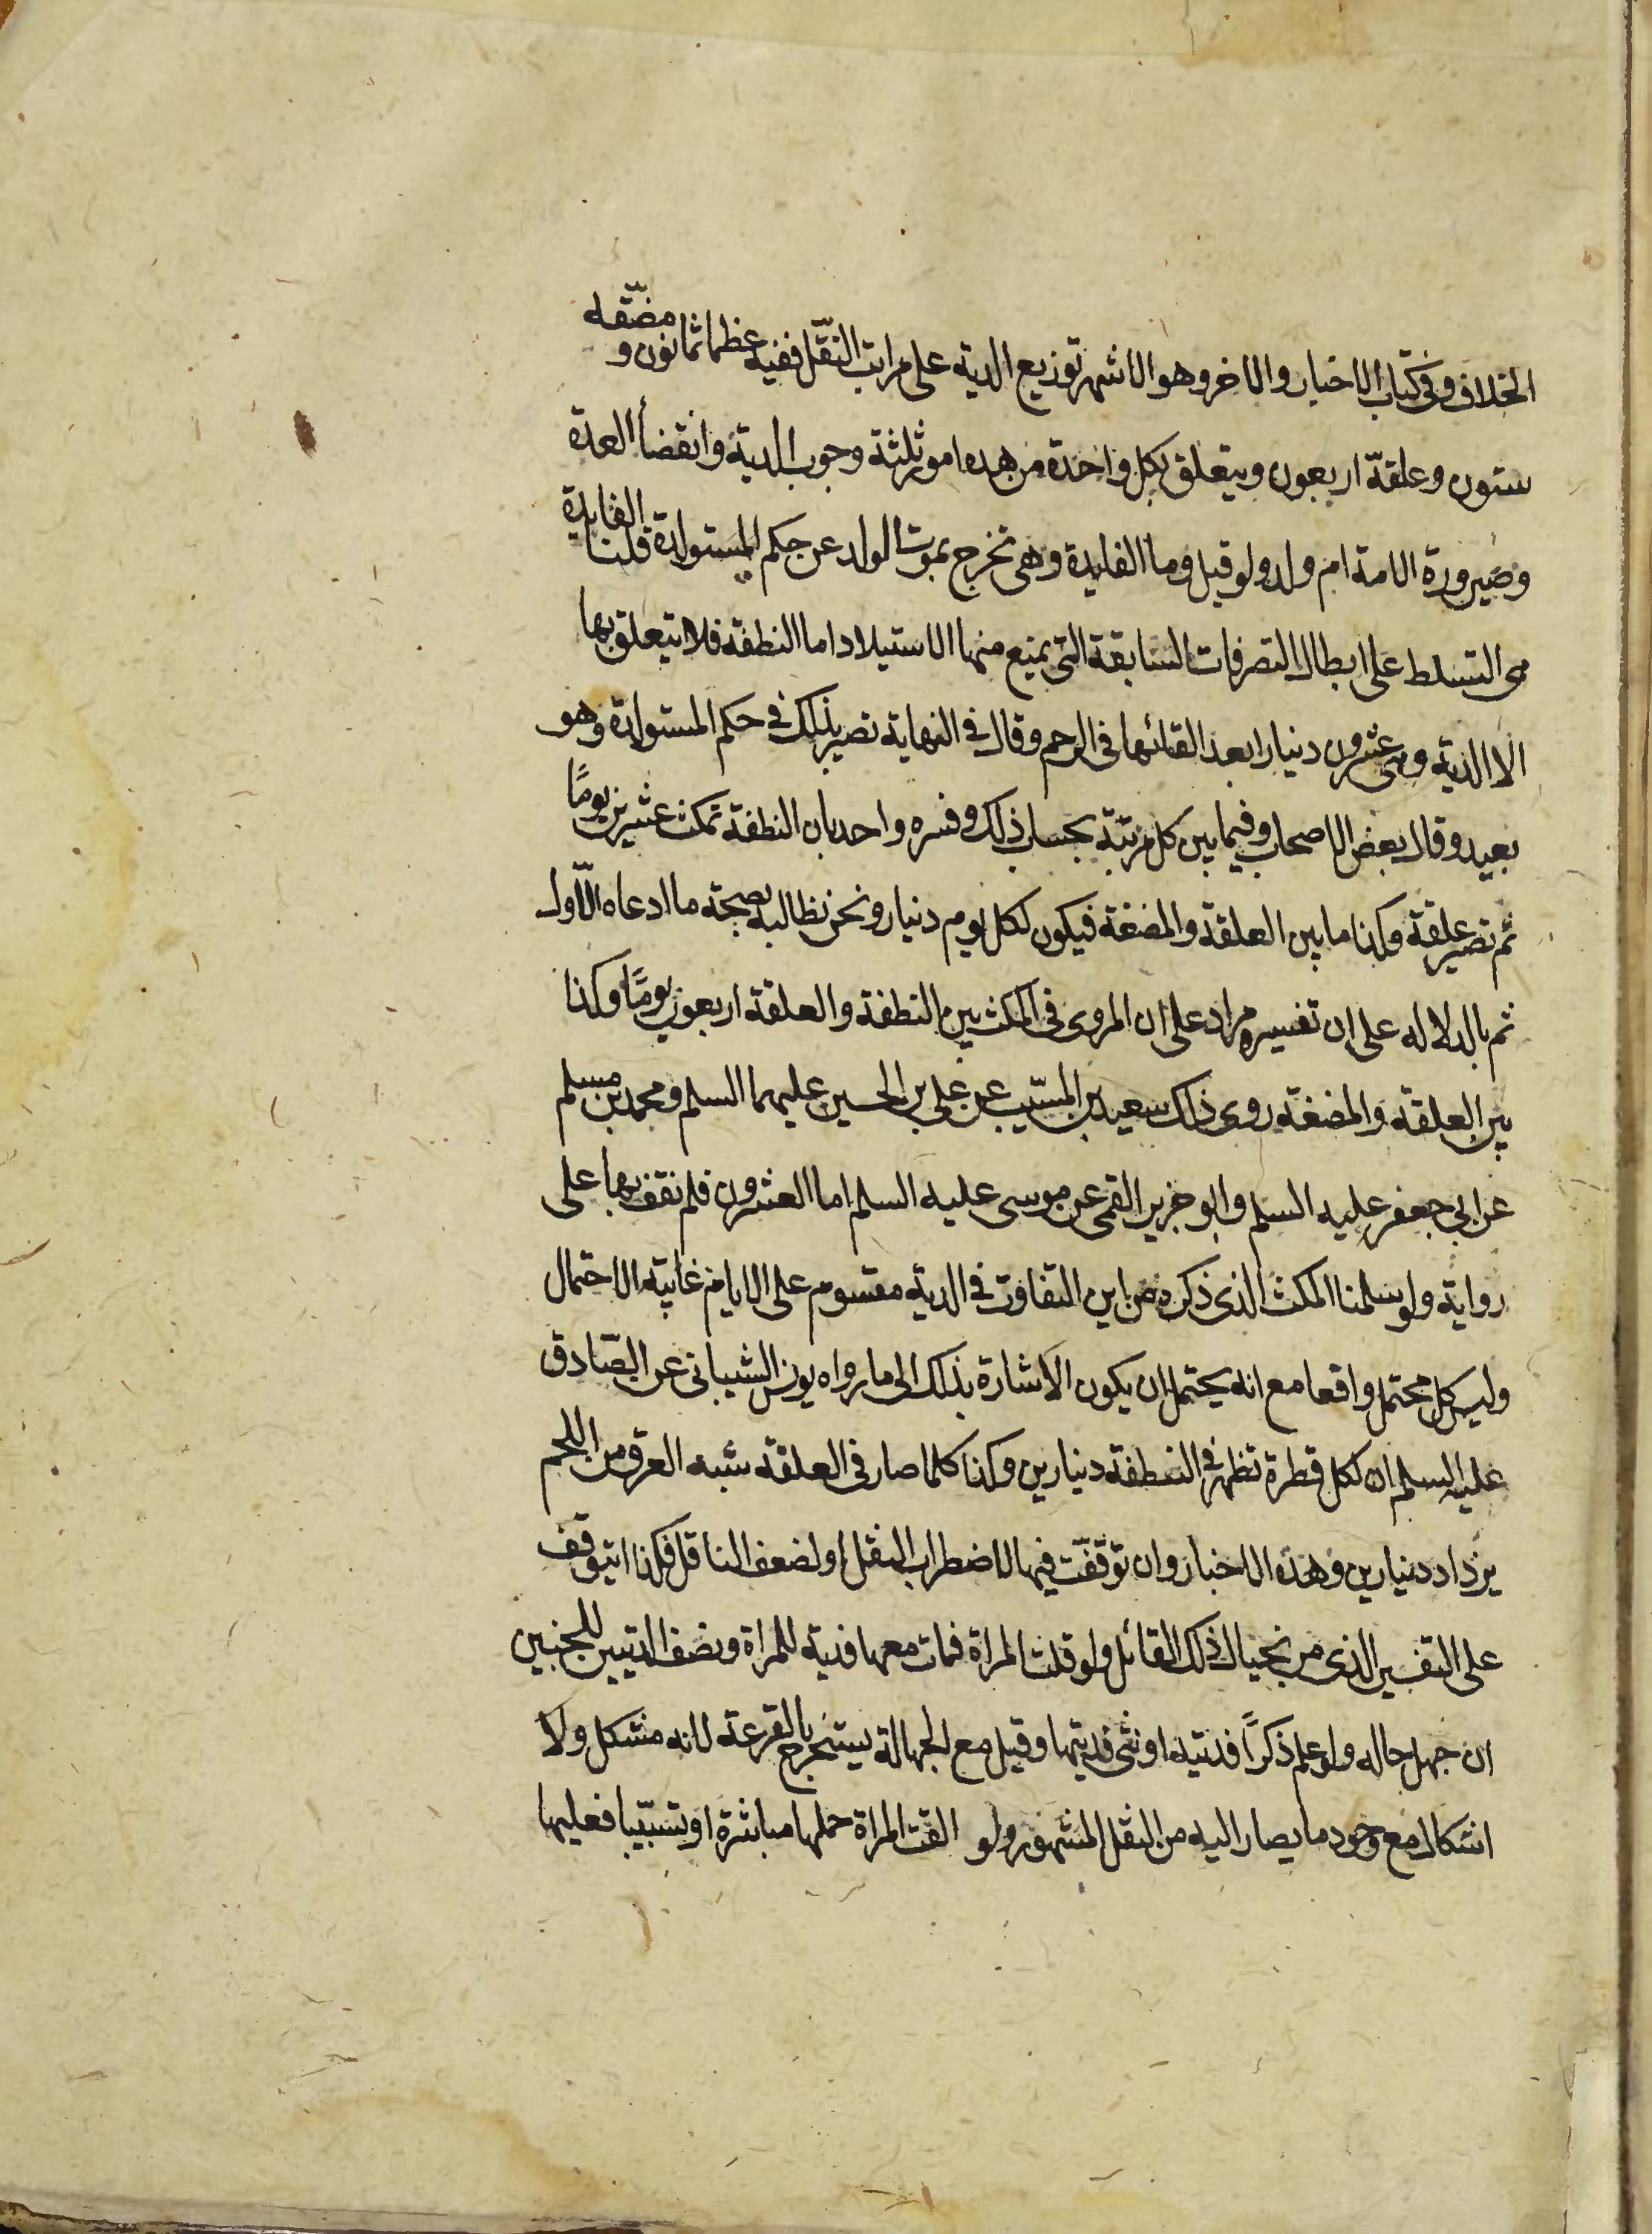 الخلاف وفى كتاب الاخبار والاخر وهو الاشهر توزيع الدية على مراتب النقل ففيه عظما ثمانون و مضقه
ستون وعلقة اربعون ويتعلق بكل واحدة من هده امور ثلثة وجوب الدية وانقضأ العدة
وصيرورة الامة ام ولد ولو قيل وما الفايدة وهى تخرج بموت الولد عن حكم المستولدة قلنا الفايدة
هى التسلط على ابطال التصرفات السابقة التى يمنع منها الاستيلاد اما النطفة فلا يتعلق بها
الا الدية وهى عشرون دينارا بعد القائها فى الرحم وقال فى النهاية تصير بذلك فى حكم المستولدة وهو
بعيد وقال بعض الاصحاب وفيما بين كل مرتبة بحساب ذلك وفسره واحد بان النطفة تمكث عشرين يومًا
ثم تصير علقة وكذا ما بين العلقة والمضغة فيكون لكل يوم دينار ونحن نطالبه بصحة ما ادعاه الاول
ثم بالدلاله على ان تفسيره مراد على ان المروى فى المكث بين النطفة والعلقة اربعون يومًا وكذا
بين العلقة والمضغة روى ذلك سعيد بن المسيب عن على بن الحسين عليهما السلم ومحمد بن مسلم
عن ابى جعفر عليه السلم وابو جرير القمى عن موسى عليه السلم اما العشرون فلم نقف بها على
رواية ولو سلمنا المكث الذى ذكره من اين التفاوت فى الدية مقسوم على الايام غايته الاحتمال
وليس كل محتمل واقعا مع انه يحتمل ان يكون الاشارة بذلك الى ما رواه يونس الشيبانى عن الصادق
عليه السلم ان لكل قطرة تظهر فى النطفة دينارين وكذا كلما صار فى العلقة شبه العرق من اللحم
يزداد دينارين وهذه الاخبار وان توقفت فيها لاضطراب النقل او لضعف الناقل فكذا اتوقف
على التفسير الذى مر بخيال ذلك القائل ولو قتلت المراة فمات معها فدية للمراة ونصف الديتين للجنين
ان جهل حاله ولو علم ذكرًا فديته او نثى فديتها وقيل مع الجهالة يستخرج بالقرعة لانه مشكل ولا
اشكال مع وجود ما يصار اليه من النقل المشهور ولو القت المراة حملها مباشرة او تسبيبا فعليها